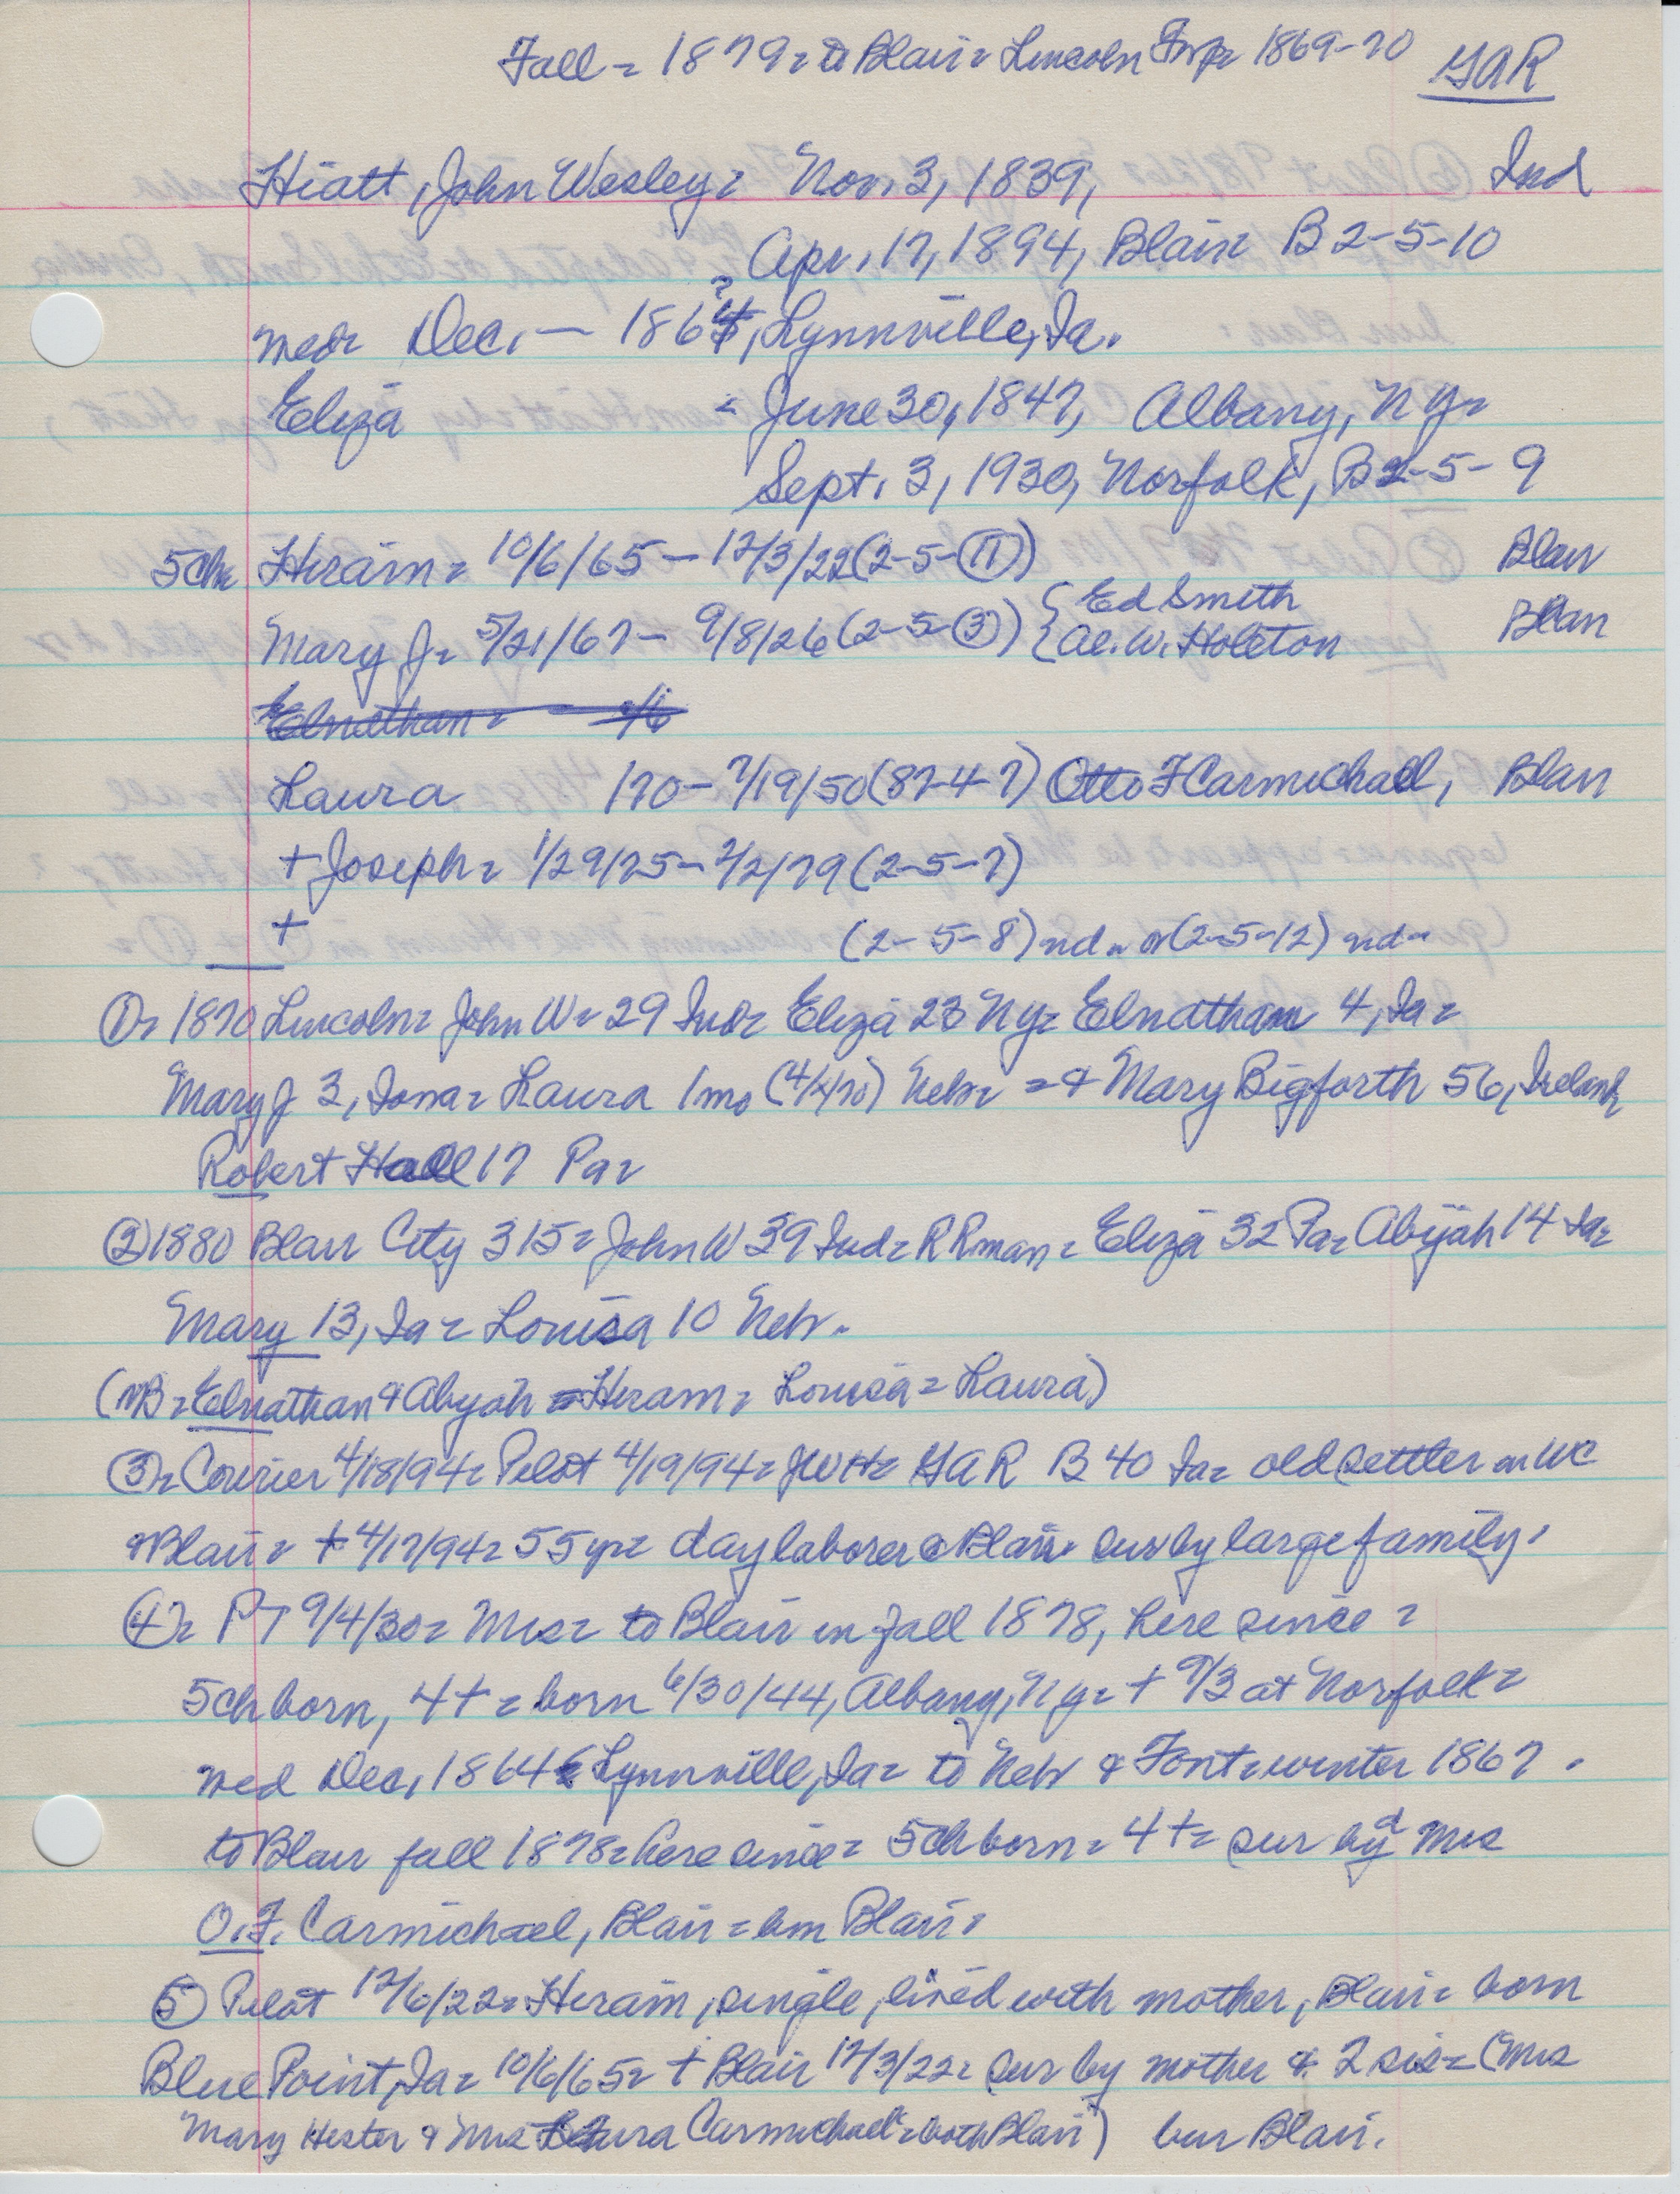 Fall = 1879 = to Blair = Lincoln Twp = 1869-70 GAR
Hiatt, John Wesley = Nov. 3, 1839, Ind
Apr. 17, 1894, Blair = B 2-5-10
med = Dec. — 1864?, Lynnville, Ia.
Eliza = June 30, 1847, Albany, NY =
Sept. 3, 1930, Norfolk, B 2-5-9
5 ch = Hiram = 10/6/65 - 12/3/22 (2-5-11) Blair
Mary J = 5/21/67 - 9/8/26 (2-5-3) { Ed Smith Blair
Al. W. Holeton
Elnathan =
Laura /70 - 7/19/50 (87-4-7) Otto F Carmichael, Blair
+ Joseph = 1/29/75 - 2/2/79 (2-5-7)
+ (2-5-8) nd = or (2-5-12) nd =
① = 1870 Lincoln = John W = 29 Ind = Eliza 23 NY = Elnathan 4, Ia =
Mary J 3, Iowa = Laura 1 mo (4/x/70) Nebr = = & Mary Bigforth 56, Ireland,
Robert Hall 17 Pa =
② 1880 Blair City 315 = John W 39 Ind = RRman = Eliza 32 Pa = Abijah 14 Ia =
Mary 13, Ia = Louisa 10 Nebr.
(NB = Elnathan & Abijah = Hiram = Louisa = Laura)
③ = Courier 4/18/94 = Pilot 4/19/94 = JWH = GAR B 40 Ia = old settler in WC
& Blair = + 4/17/94 = 55 yr = day laborer @ Blair = sur by large family.
④ = PT 9/4/30 = Mrs = to Blair in fall 1878, here since =
5 ch born, 4 + = born 6/30/44, Albany, NY = + 9/3 at Norfolk =
med Dec, 1864 Lynnville, Ia = to Nebr & Font = winter 1867.
to Blair fall 1878 = here since = 5 ch born = 4 + = sur by d Mrs
O.F. Carmichael, Blair = bur Blair =
⑤ Pilot 12/6/22 = Hiram, single, lived with mother, Blair = born
Blue Point, Ia = 10/6/65 = + Blair 12/3/22 = sur by mother & 2 sis = (Mrs
Mary Hester & Mrs Laura Carmichael = both Blair) bur Blair.